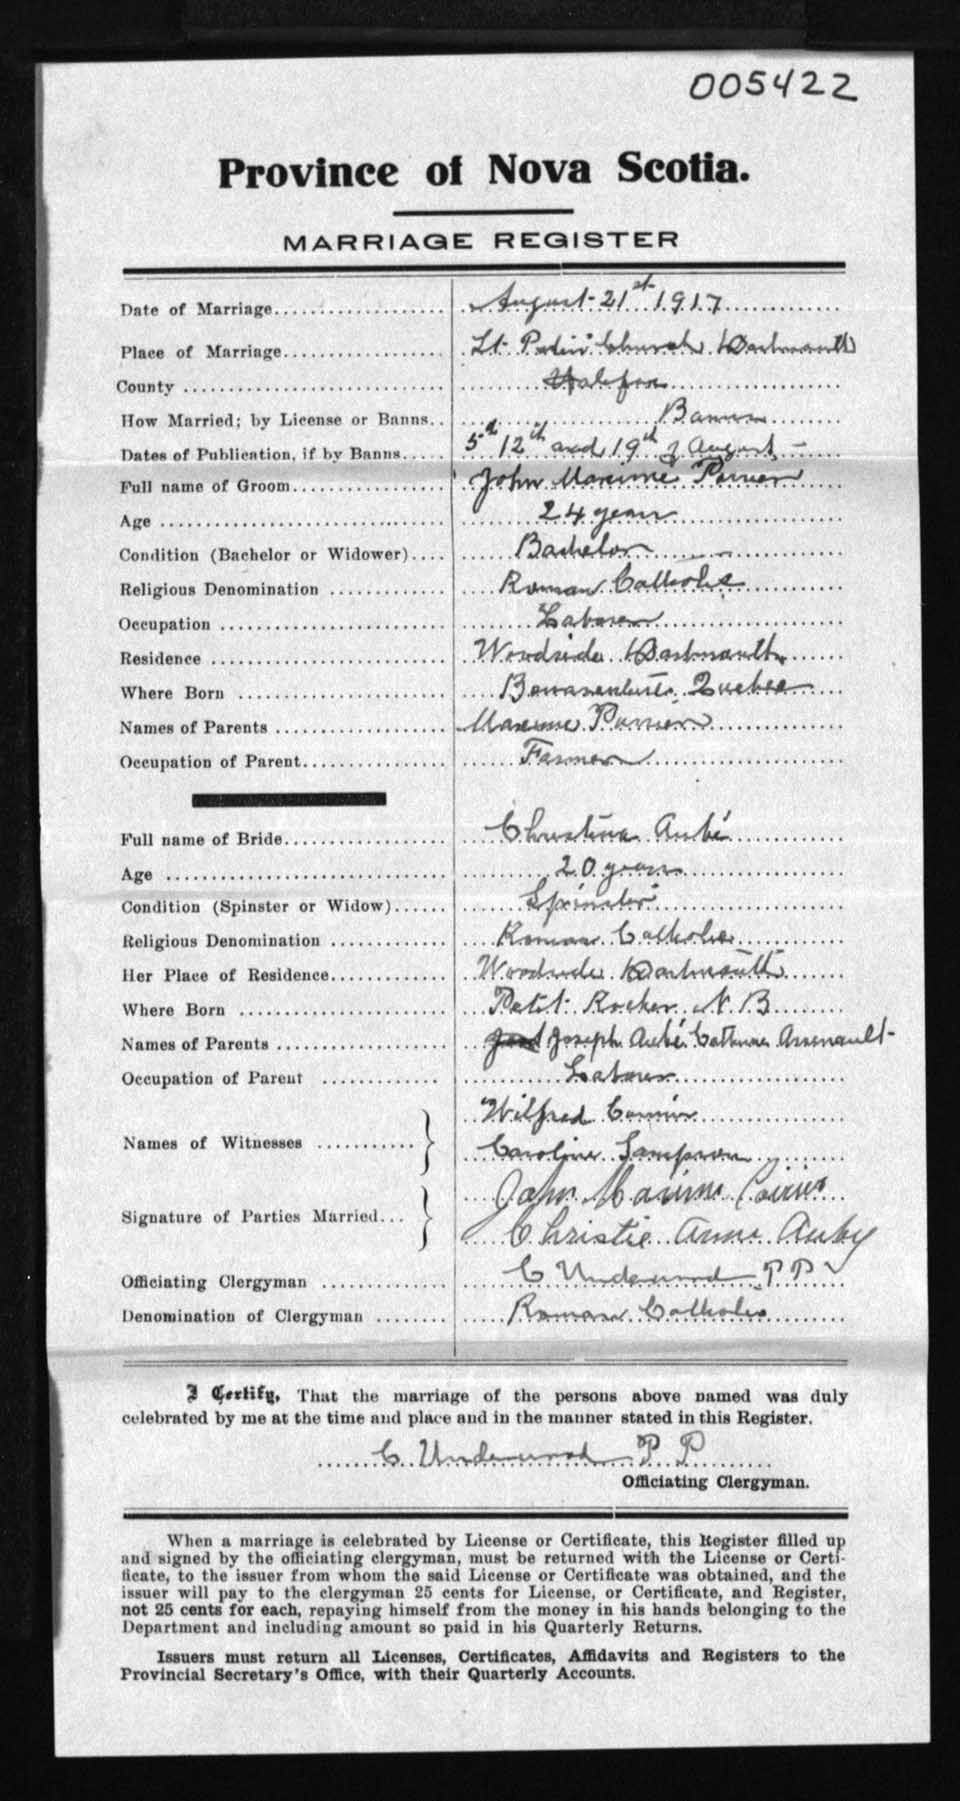 005422
Province of Nova Scotia.
MARRIAGE REGISTER
Date of Marriage August 21st 1917
Place of Marriage St Peter's Church Dartmouth
County Halifax
How Married; by License or Banns Banns
Dates of Publication, if by Banns 5th 12th and 19th of August
Full name of Groom John Maxime
Age 24 years
Condition (Bachelor or Widower) Bachelor
Religious Denomination Roman Catholic
Occupation Laborer
Residence Woodside Dartmouth
Where Born Bonaventure Quebec
Names of Parents Maxime
Occupation of Parent Farmer
Full name of Bride Christina Aubé
Age 20 years
Condition (Spinster or Widow) Spinster
Religious Denomination Roman Catholic
Her Place of Residence Woodside Dartmouth
Where Born Petit Rocher N. B
Names of Parents Joseph Aubé Catherine Arsenault
Occupation of Parent Laborer
Names of Witnesses Wilfred
Caroline Sampson
Signature of Parties Married John Maxime Poirier
Christie Anne Auby
Officiating Clergyman C Underwood P P
Denomination of Clergyman Roman Catholic
I Certify, That the marriage of the persons above named was duly
celebrated by me at the time and place and in the manner stated in this Register.
C Underwood P P
Officiating Clergyman.
When a marriage is celebrated by License or Certificate, this Register filled up
and signed by the officiating clergyman, must be returned with the License or Certi-
ficate, to the issuer from whom the said License or Certificate was obtained, and the
issuer will pay to the clergyman 25 cents for License, or Certificate, and Register,
not 25 cents for each, repaying himself from the money in his hands belonging to the
Department and including amount so paid in his Quarterly Returns.
Issuers must return all Licenses, Certificates, Affidavits and Registers to the
Provincial Secretary's Office, with their Quarterly Accounts.